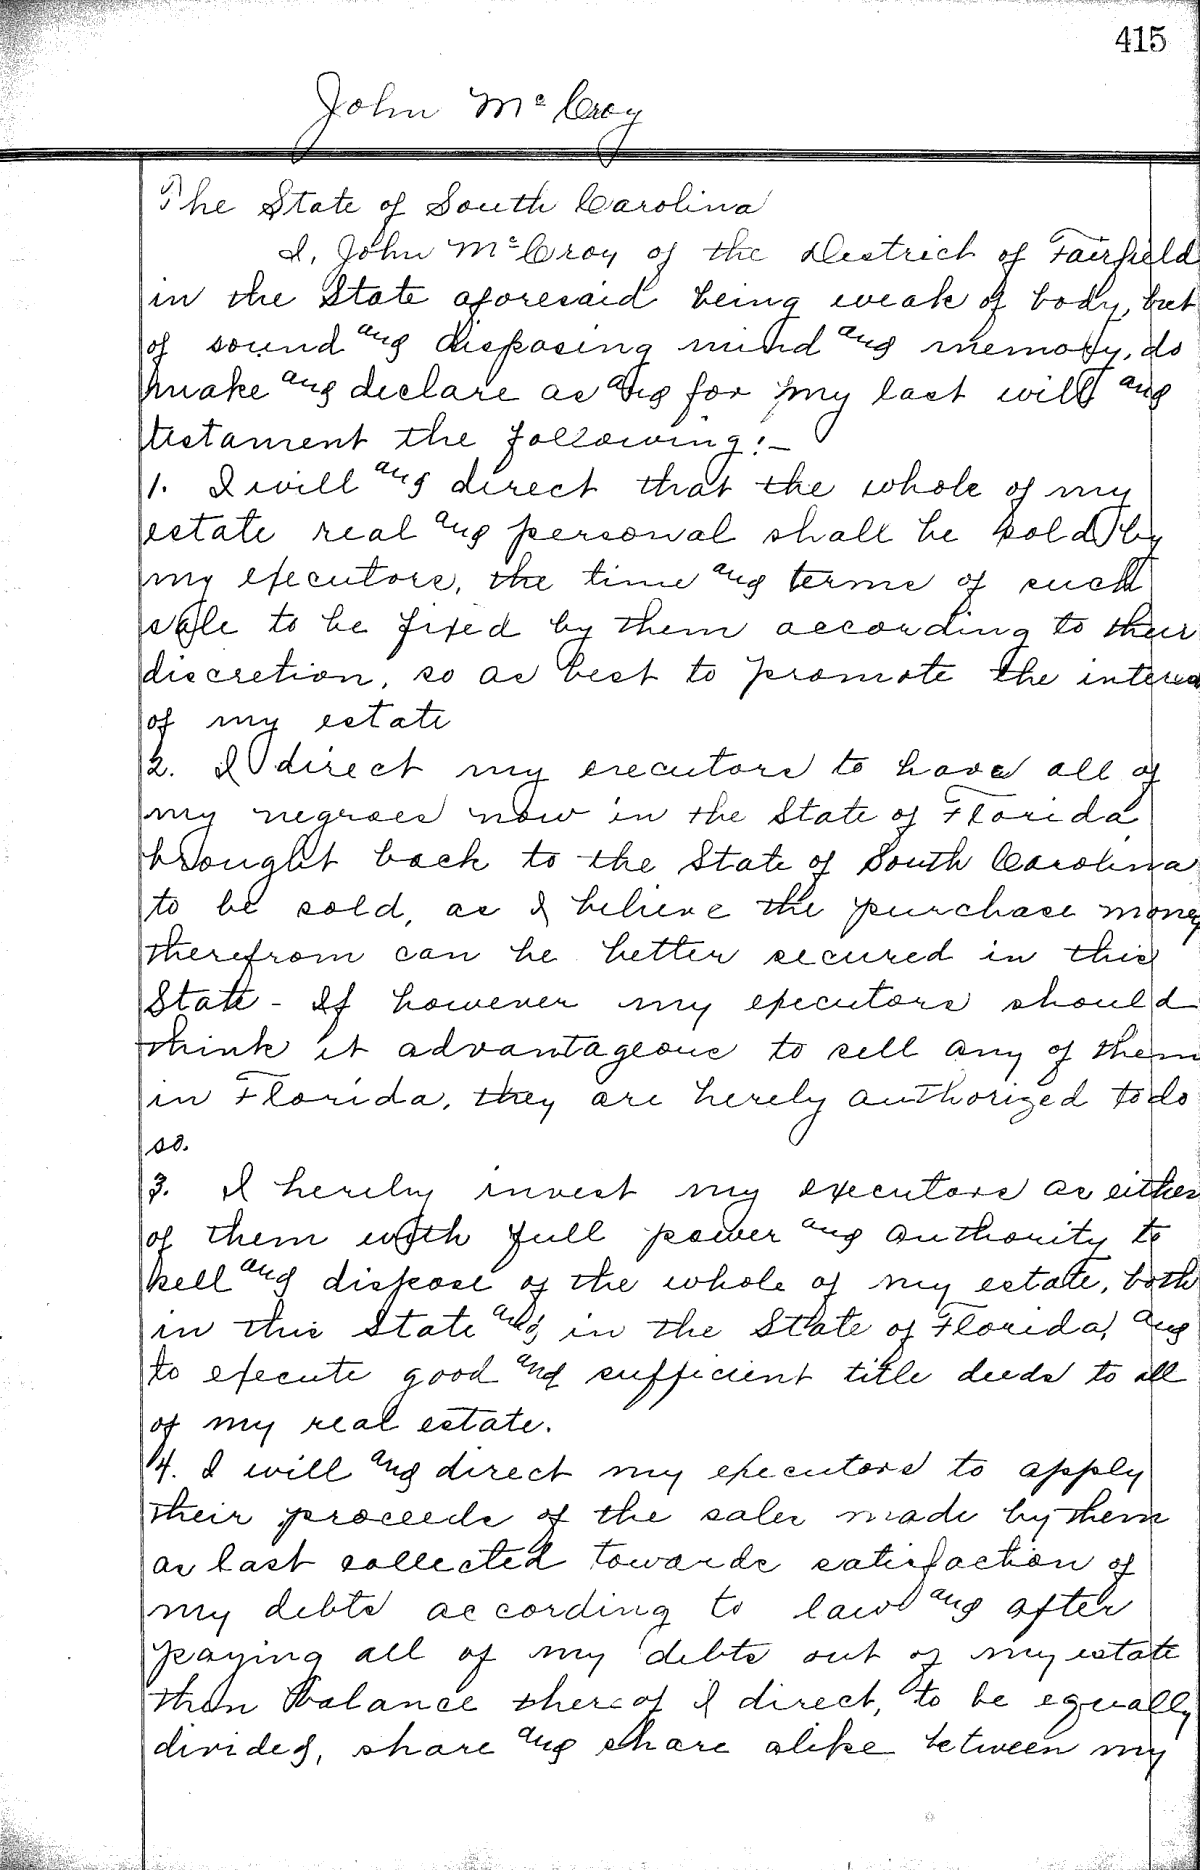 415
John McCroy
The State of South Carolina
I, John McCroy of the District of Fairfield
in the State aforesaid being weak of body, but
of sound and disposing mind and memory, do
make and declare as and for my last will and
testament the following:-
1. I will and direct that the whole of my
estate real and personal shall be sold by
my executors, the time and terms of such
sale to be fixed by them according to their
discretion, so as best to promote the interest
of my estate
2. I direct my executors to have all of
my negroes now in the State of Florida
brought back to the State of South Carolina
to be sold, as I believe the purchase money
therefrom can be better secured in this
State - If however my executors should
think it advantageous to sell any of them
in Florida, they are hereby authorized to do
so.
3. I hereby invest my executors or either
of them with full power and authority to
sell and dispose of the whole of my estate, both
in this State and in the State of Florida, and
to execute good and sufficient title deeds to all
of my real estate.
4. I will and direct my executors to apply
their proceeds of the sales made by them
as last collected towards satisfaction of
my debts according to law and after
paying all of my debts out of my estate
then balance thereof I direct, to be equally
divided, share and share alike between my